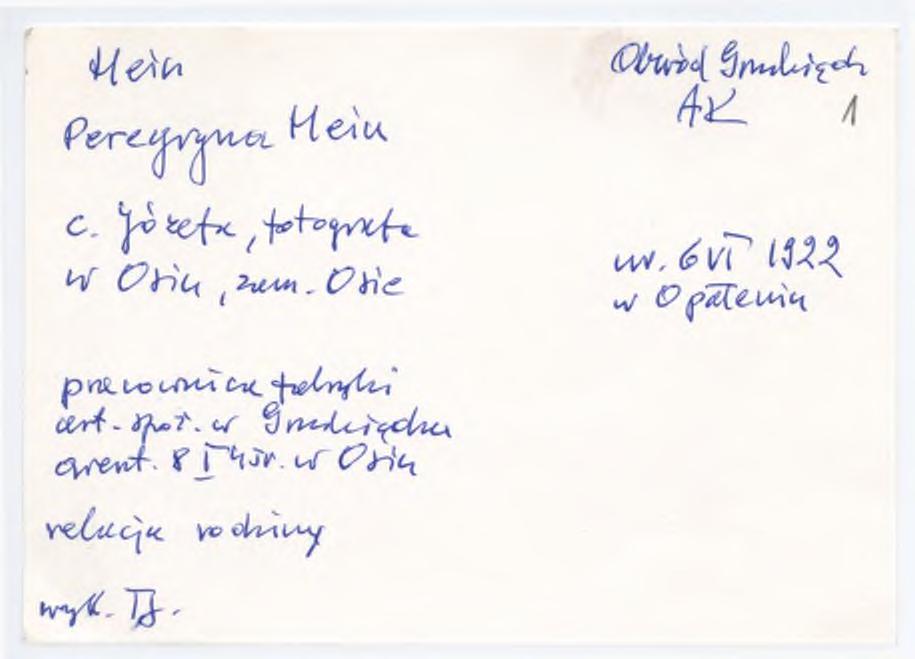 Hein
Obwód Grudziądz
AK 1
Peregryna Hein
c. Józefa, fotografa
w Osiu, zam. Osie
ur. 6 VI 1922
w Opaleniu
pracownica fabryki
art. spoż. w Grudziądzu
arent. 8 I 45r. w Osiu
relacja rodziny
wyk. TJ.